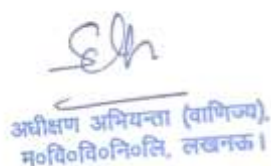 अधीक्षण अभियन्ता (वाणिज्य),
म०वि०वि०नि०लि, लखनऊ।